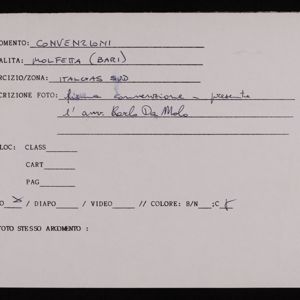 OMENTO: CONVENZIONI
ALITA: MOLFETTA (BARI)
RCIZIO/ZONA: ITALGAS SUD
CRIZIONE FOTO: firma convenzione - presente
l' avv. Carlo Da Molo
LOC: CLASS
CART
PAG
O X / DIAPO / VIDEO // COLORE: B/N ;C X
OTO STESSO ARGOMENTO :